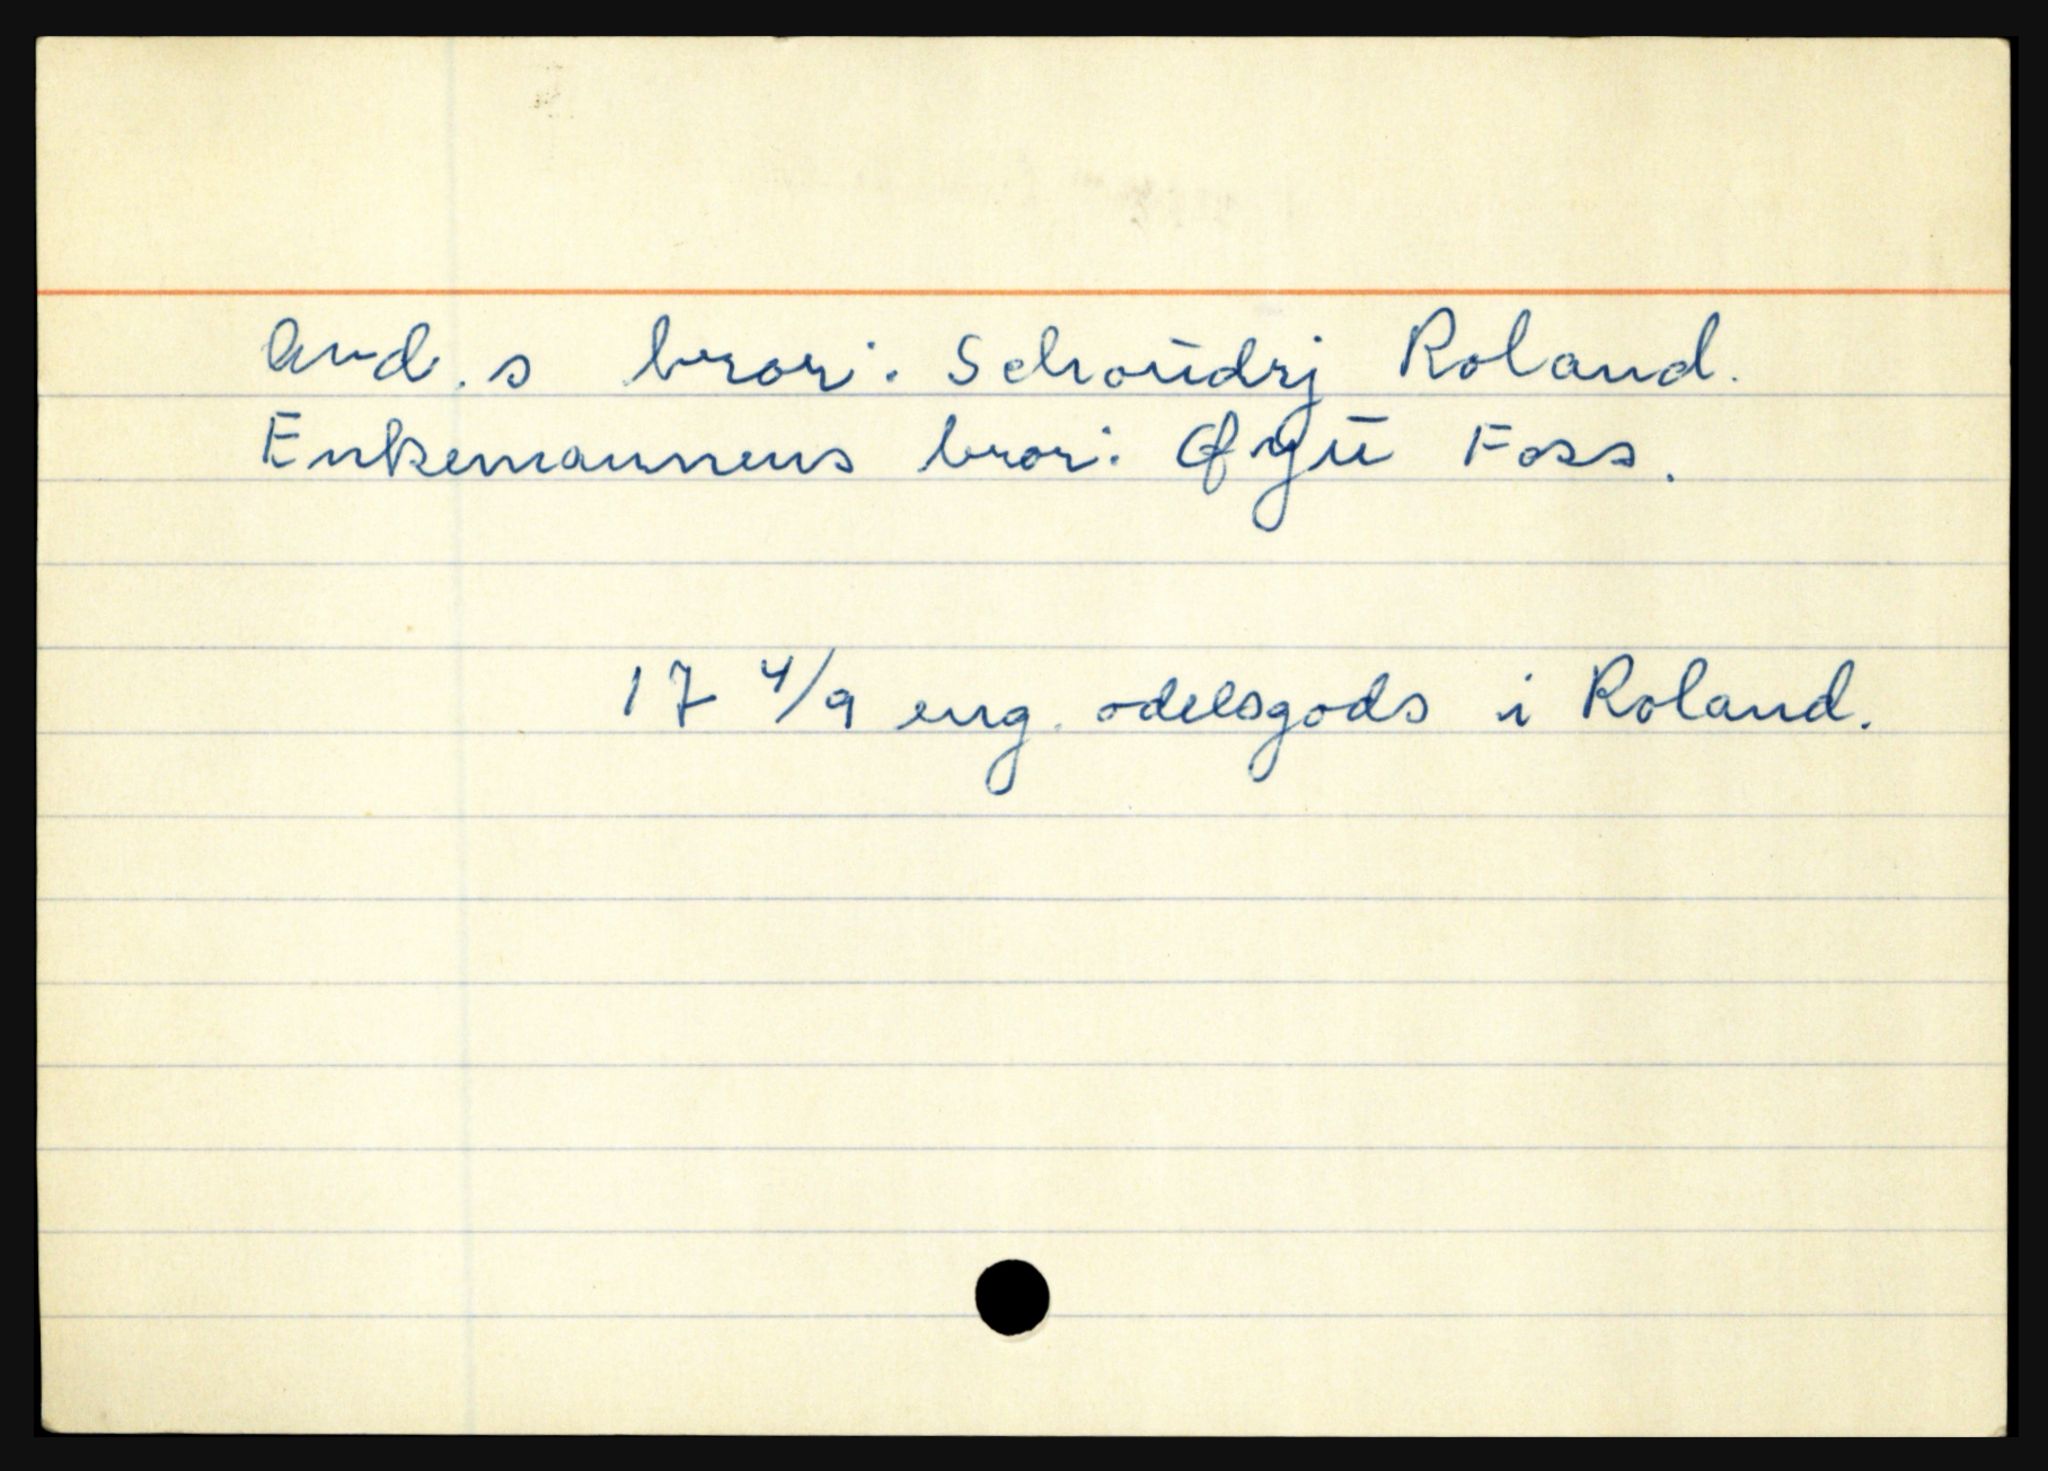 And.s bror: Schoŭdrj Roland.
Enkemannens bror: Øyŭ Foss.
17 4/9 eng. odelsgods i Roland.